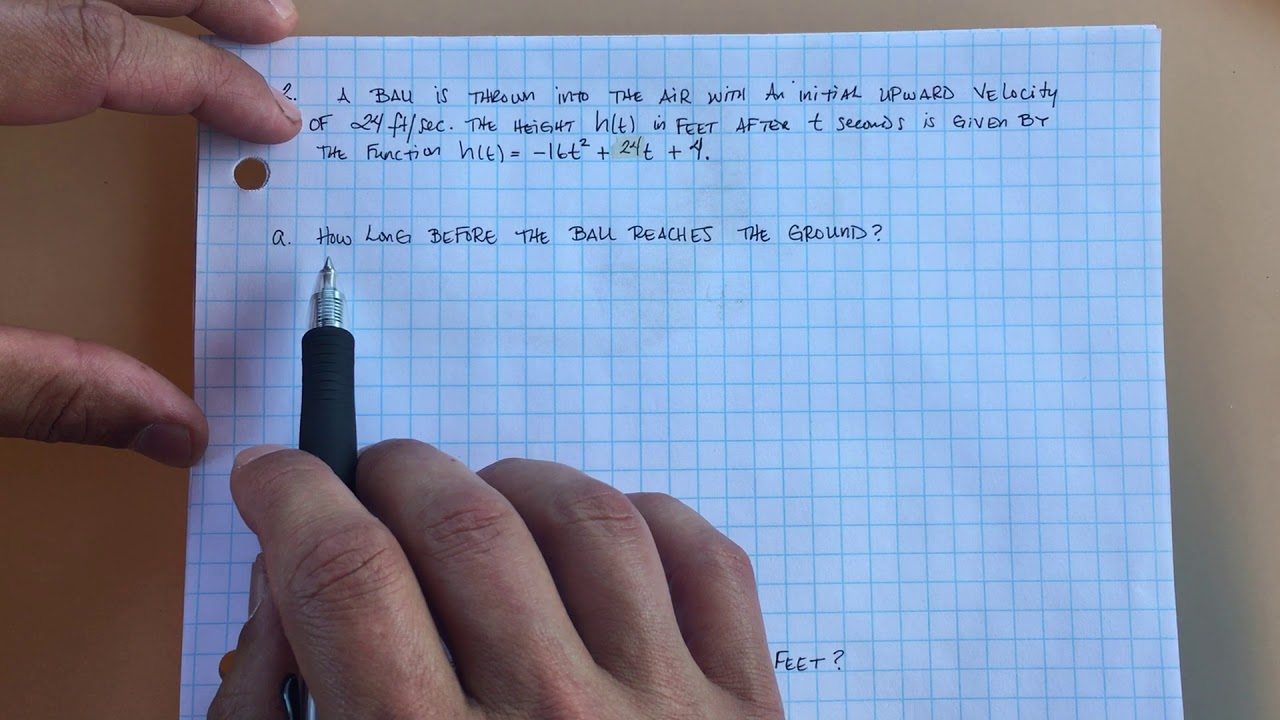 2. A BALL IS THROWN INTO THE AIR WITH AN INITIAL UPWARD VELOCITY
OF 24 ft/sec. THE HEIGHT h(t) in FEET AFTER t seconds is GIVEN BY
THE Function h(t) = -16t² + 24t + 4.
a. How LONG BEFORE THE BALL REACHES THE GROUND?
FEET?